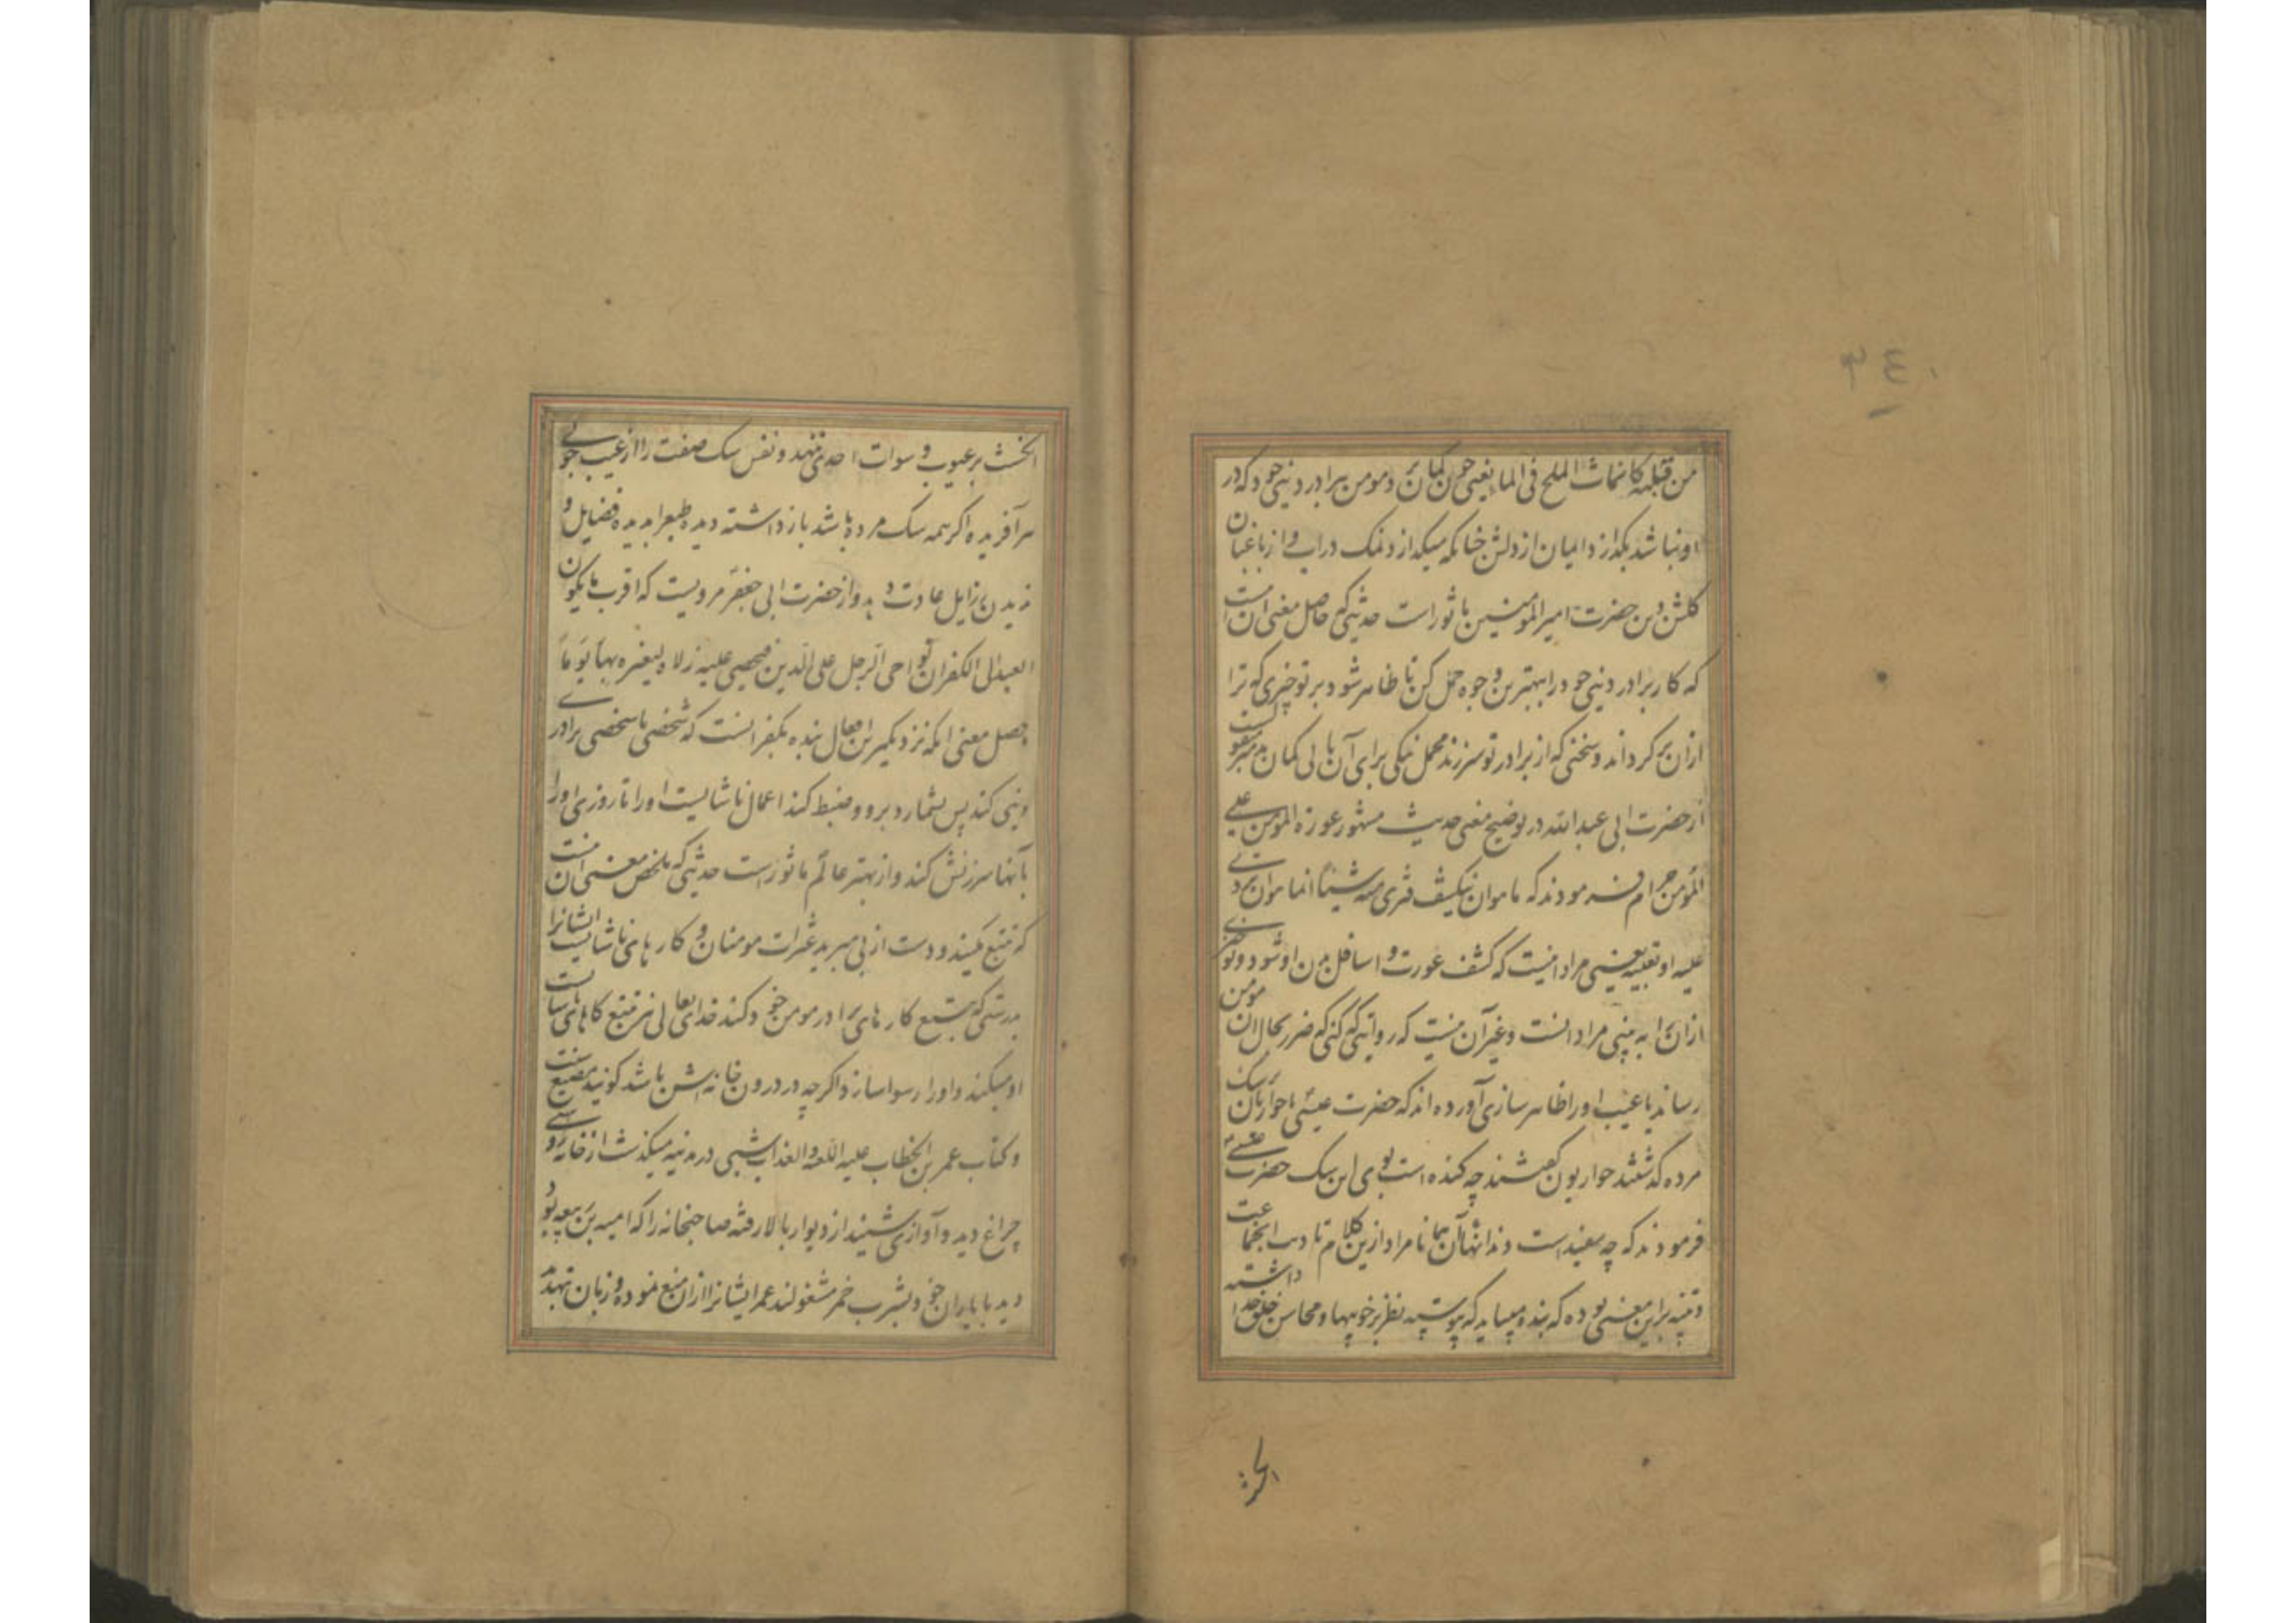 من قبله کما ینماث الملح فی الما یعنی چون کمان بَرَد مومن ببرادر دینی خود که در
او نباشد بکدازد ایمان از دلش چنانکه میکدازد نمک در آب و از باغبان
کلشن دین حضرت امیر المومنین ماثور است حدیثی که حاصل معنی آن است
که کار برادر دینی خود را ببهترین وجوه حمل کن تا ظاهر شود بر تو چیزی که ترا
از آن برکرداند و سخنی که از برادر تو سر زند محمل نیکی برای آن یابی کمان بد مبر
از حضرت ابی عبد الله در توضیح معنی حدیث مشهور عورة المومن علی
المؤمن حرام فرمودند که ما هو ان یکشف فتری منه شیئاً انما هو ان تروی
علیه او تعیبه یعنی مراد این نیست که کشف عورت و اسافل بدن او شود و تو چیزی
از آن را به بینی مراد آنست و غیر آن نیست که روایتی که کنی که ضرر بحال آن مومن
رساند یا عیب او را ظاهر سازی آورده اند که حضرت عیسی با حواریان بر سک
مرده کذشتند حواریون کفتند چه کنده است بوی این سک حضرت عیسی
فرمودند که چه سفید است دندانهای آن همانا مراد ازین کلام تادیب آنجماعت
و تنبیه براین معنی بوده که بنده میباید که پیوسته نظر بر خوبیها و محاسن خلق خدا داشته
الخشت
انخشت بر عیوب و سوات احدی ننهد و نفس سک صفت را از عیب جوئی
هر آفریده اکر همه سک مرده باشد باز داشته دیده طبع را بدیده فضایل و
ندیدن رذایل عادت دهد و از حضرت ابی جعفر مرویست که اقرب ما یکون
العبد الی الکفر ان یواخی الرجل علی الدین فیحصی علیه زلاته لیعیره بها یوماً
حاصل معنی آنکه نزدیکترین افعال بنده بکفر آنست که شخصی با شخصی برادری
دینی کند پس بشمارد برو و ضبط کند اعمال ناشایست او را تا روزی او را
بآنها سرزنش کند و از بهتر عالم ماثور است حدیثی که ملخص معنی آن است
که تتبع مکنید و دست از پی مبرید عثرات مومنان و کارهای ناشایست ایشانرا
بدرستی که هر که تتبع کارهای برادر مومن خود کند خدای تعالی نیز تتبع کارهای ناشایست
او میکند و او را رسوا سازد اکرچه در درون خانه اش باشد کویند
و کتاب عمر بن الخطاب علیه اللعنه و العذاب شبی در مدینه میکذشت از خانه روشنی
چراغ دید و آوازی شنید از دیوار بالا رفته صاحبخانه را که امیه بن ربیعه بود
دید با یاران خود بشرب خمر مشغولند عمر ایشانرا از آن منع نموده و زبان تهدید